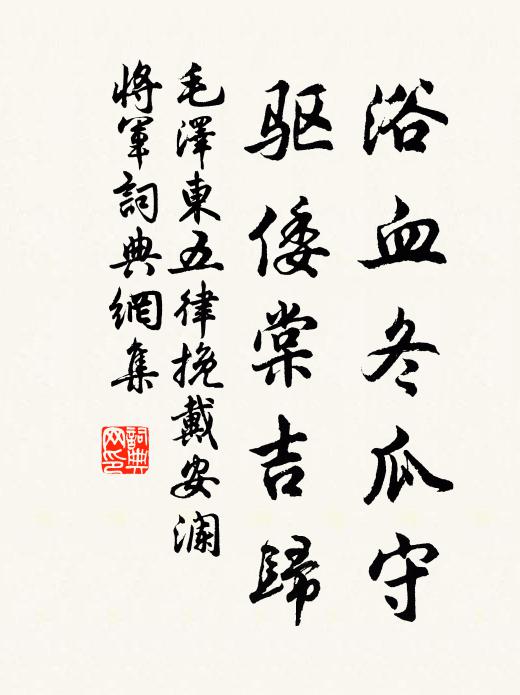 浴血冬瓜守
驱倭棠吉歸
毛澤東五律挽戴安澜
將軍詞典網集
詞典網印